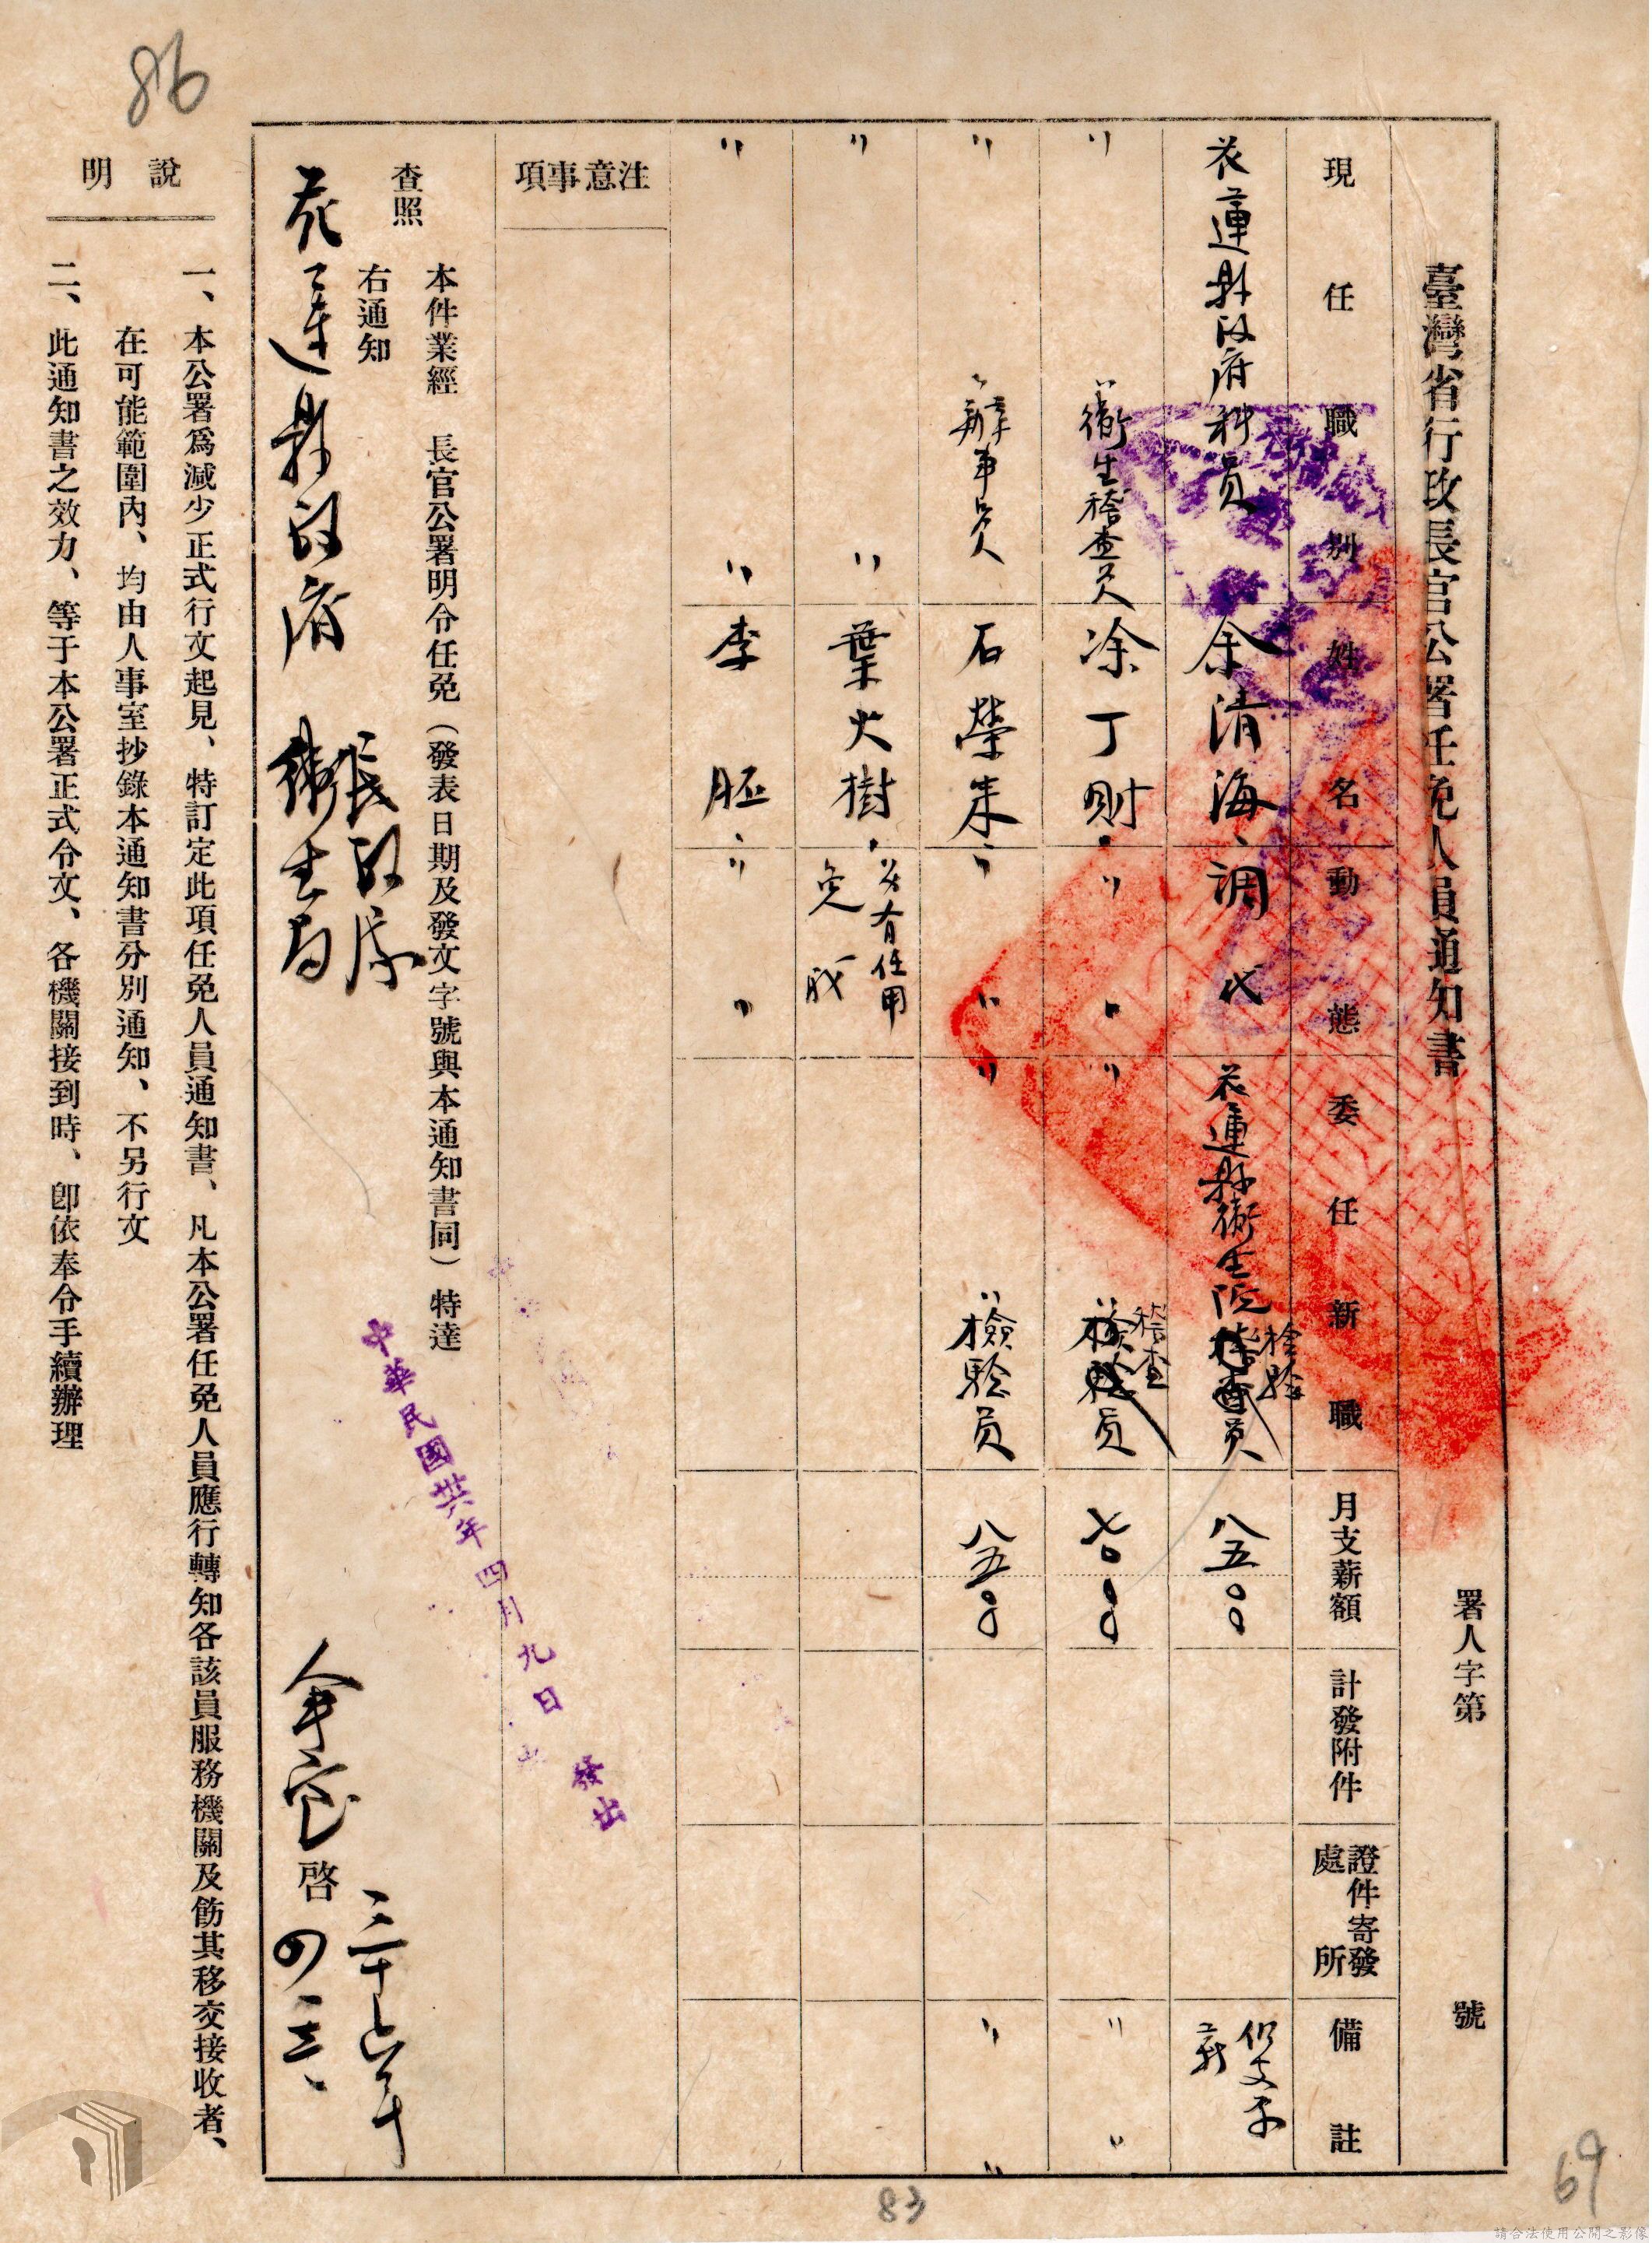 86
臺灣省行政長官公署任免人員通知書
署人字第 號
現任職別 姓名 動態 委任新職 月支薪額 計發附件 證件寄發處所 備註
花蓮縣政府科員 余清海 調代 花蓮縣衛生院檢驗員 八五〇〇
〃 〃衛生稽查員 涂丁財 〃 〃 〃 〃稽查員 七〇〇〇 〃 〃
〃 〃辦事員 石榮朱 〃 〃 〃 〃檢驗員 八五〇〇 〃 〃
〃 〃 葉火樹 免
〃 〃 李胚 〃 〃
注意事項
本件業經 長官公署明令任免(發表日期及發文字號與本通知書同)特達
查照
右通知
花蓮縣政府
民政廳
衛生局
啓
三十六年
四 三
中華民國卅六年四月九日 發出
說明
一、本公署爲減少正式行文起見、特訂定此項任免人員通知書、凡本公署任免人員應行轉知各該員服務機關及飭其移交接收者、
在可能範圍內、均由人事室抄錄本通知書分別通知、不另行文
二、此通知書之效力、等于本公署正式令文、各機關接到時、卽依奉令手續辦理
83
69
請合法使用公開之影像